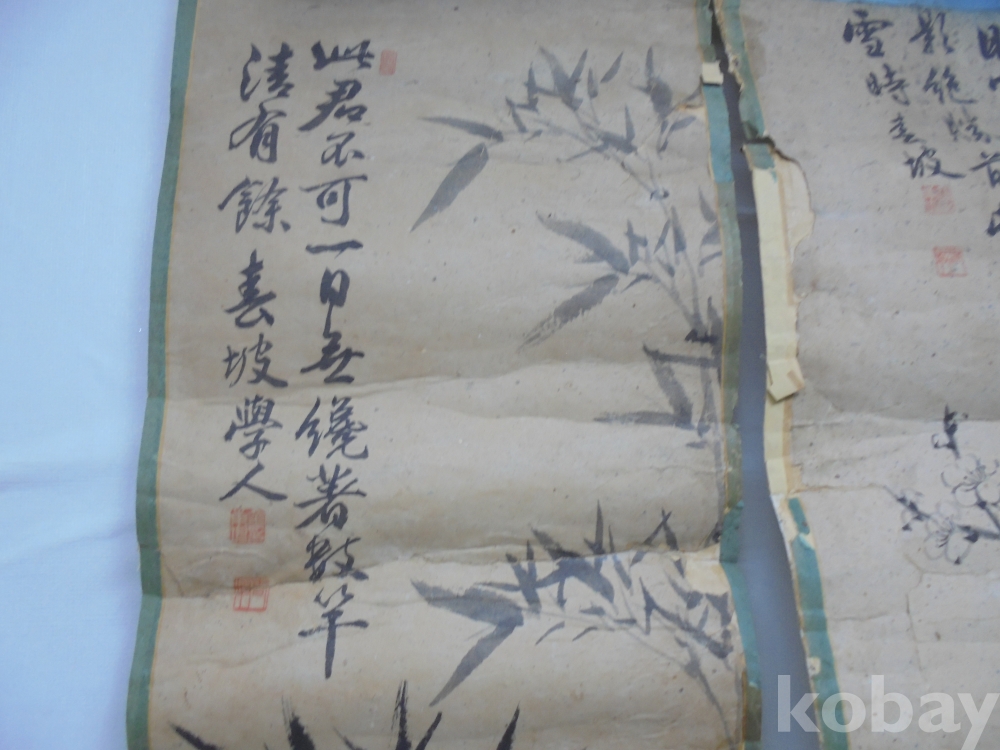 此君不可一日無纔著數竿
清有餘 春坡學人
影絶勝前
雪時春坡
kobay